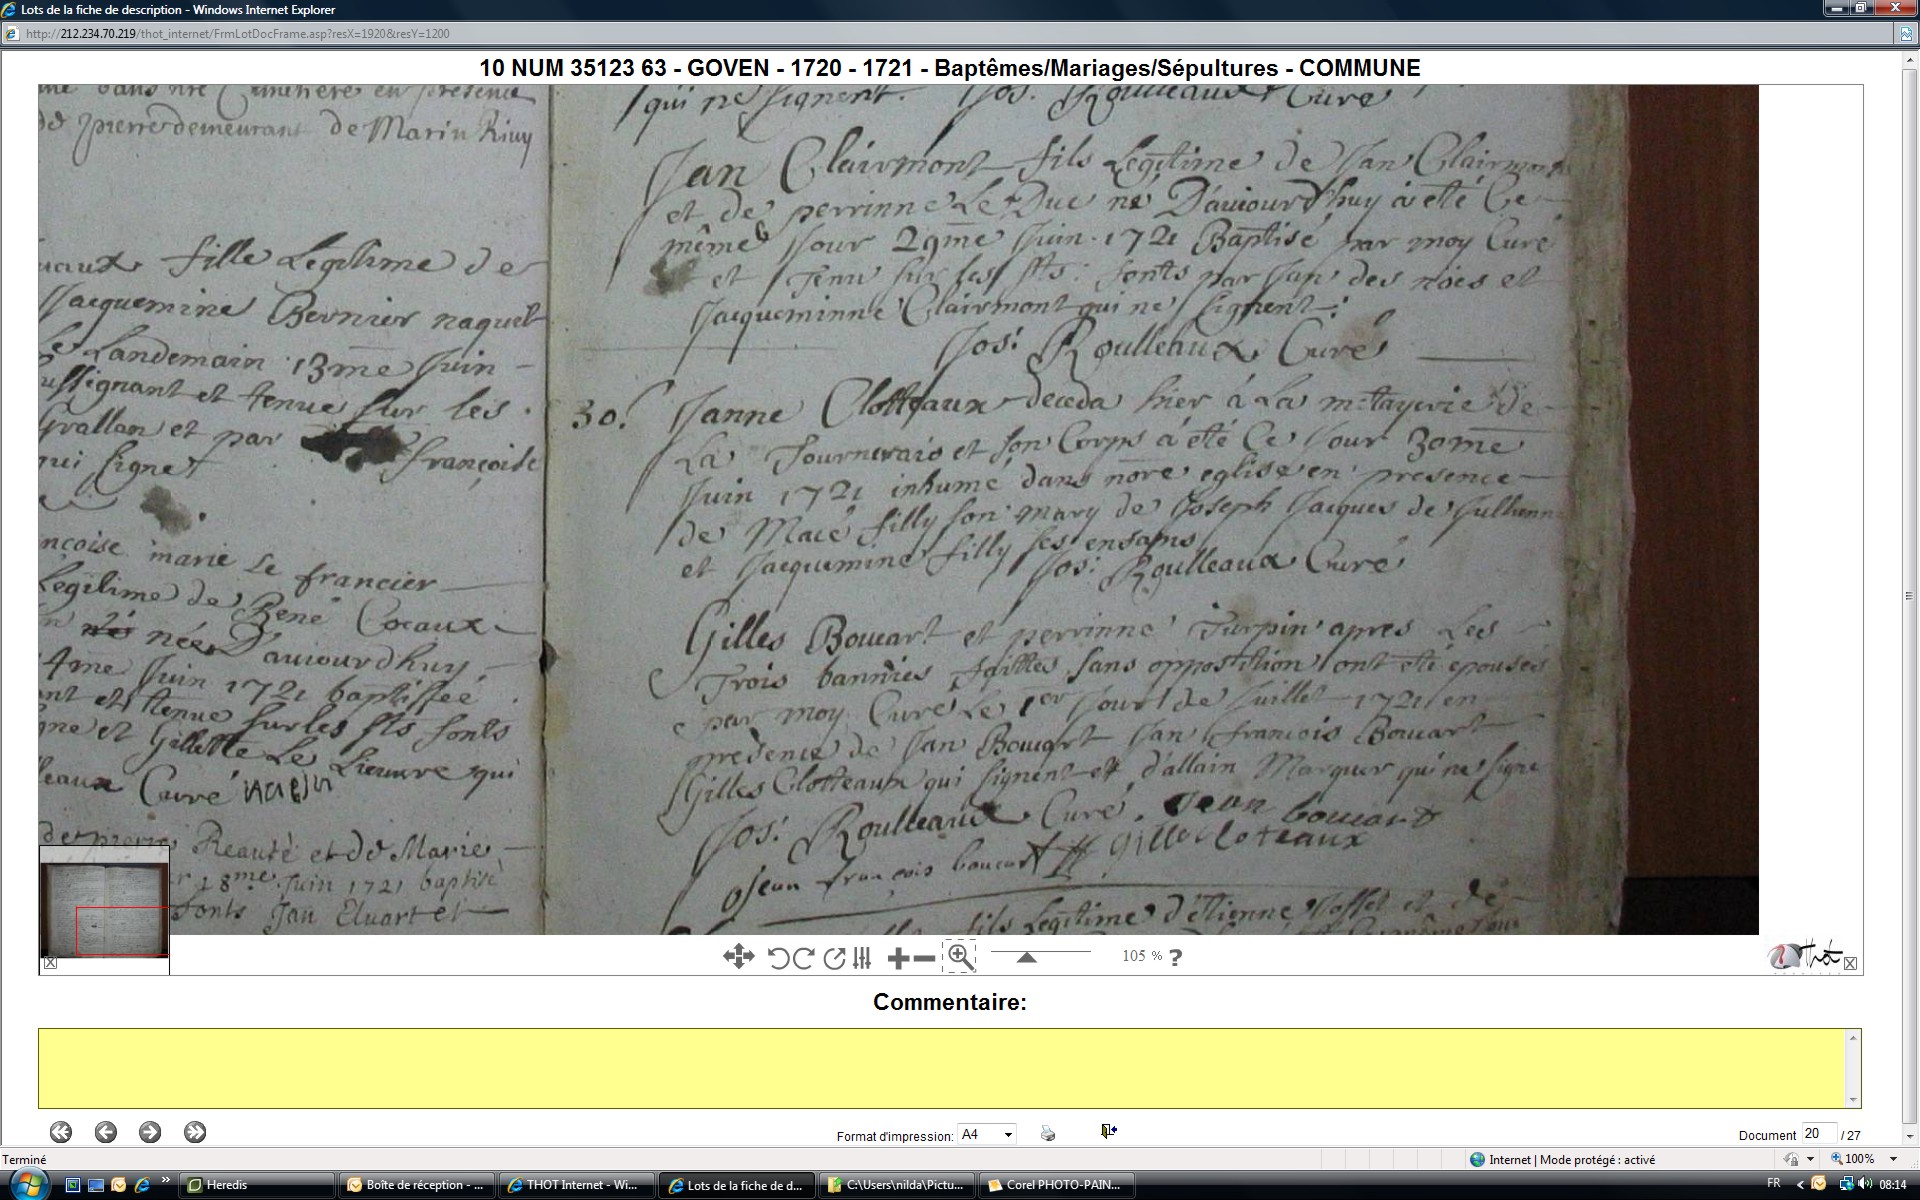 Lots de la fiche de description - Windows Internet Explorer
http://212.234.70.219/thot_internet/FrmLotDocFrame.asp?resX=1920&resY=1200
10 NUM 35123 63 - GOVEN - 1720 - 1721 - Baptêmes/Mariages/Sépultures - COMMUNE
en presence
de pierre demeurant de Marin
fille Legitime de
Jacquemine Bernier naquit
Landemain 13me Juin
et tenue sur les
Grallan et par françoise
qui signe
marie Le francier
Legitime de René Cocaux
née D'auiourdhuy
4me Juin 1721 baptissée
et tenue sur les sts fonts
et Gillette Le Lieuvre qui
Curé
de pierre Reauté et de Marie
18me Juin 1721 baptisé
fonts Jan Eluart et
qui ne signent. Jos: Roulleaux Curé
Jan Clairmont fils Legitime de Jan Clairmont
et de perrinne Le Duc né D'auiourd'huy à été Ce
même Jour 29me Juin 1721 Baptisé par moy Curé
et Tenu sur les sts: fonts par Jan des nöes et
Jacqueminne Clairmont qui ne signent:
Jos: Roulleaux Curé
30. Janne Clotteaux deceda hier à La metayerie de
La Tournerais et son Corps à été Ce Jour 30me
Juin 1721 inhumé dans nôre eglise en presence
de Macé filly son mary de Joseph Jacques de Jullienne
et Jacquemine filly ses enfans
Jos: Roulleaux Curé
Gilles Boucart et perrinne Turpin apres Les
Trois bannies faittes sans oppostition ont été épousés
par moy Curé Le 1er Jour de Juillet 1721 en
presence de Jan Boucart Jan francois Boucart
Gilles Clotteaux qui signent et d'allain Marquer qui ne signe
Jos: Roulleaux Curé. Jean boucart
Jean françois boucart Gille Cloteaux
fils Legitime d'étienne et de
105 % ?
Thot
Commentaire:
Format d'impression: A4
Document 20 / 27
Terminé
Internet | Mode protégé : activé
100%
Heredis
Boîte de réception - ...
THOT Internet - Wi...
Lots de la fiche de d...
C:\Users\nilda\Pictu...
Corel PHOTO-PAIN...
FR
08:14